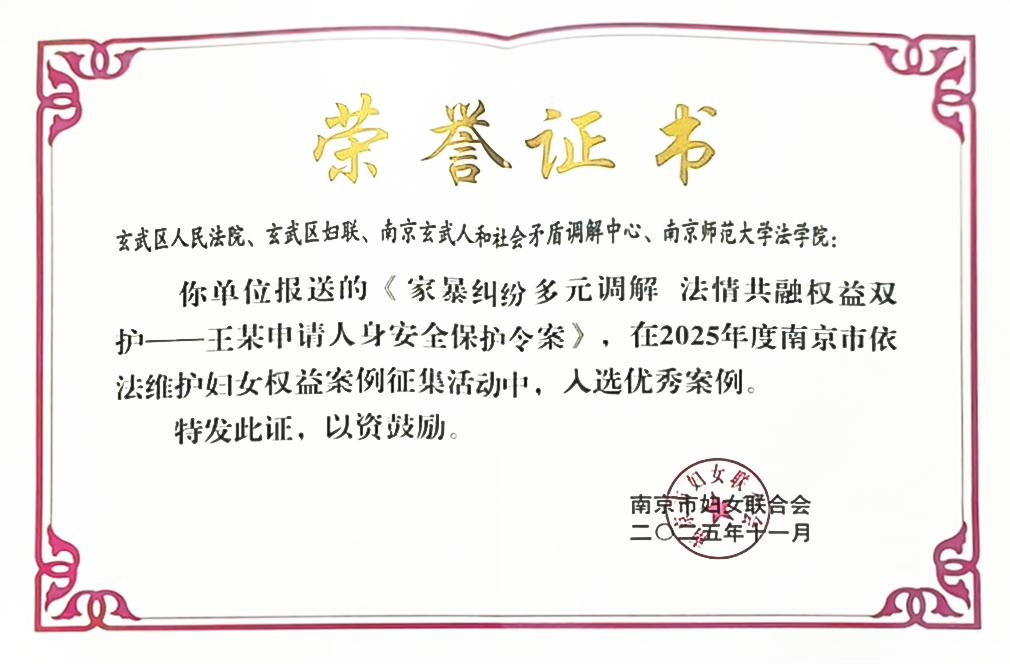 荣誉证书
玄武区人民法院、玄武区妇联、南京玄武人和社会矛盾调解中心、南京师范大学法学院：
你单位报送的《家暴纠纷多元调解 法情共融权益双
护——王某申请人身安全保护令案》，在2025年度南京市依
法维护妇女权益案例征集活动中，入选优秀案例。
特发此证，以资鼓励。
南京市妇女联合会
南京市妇女联合会
二〇二五年十一月